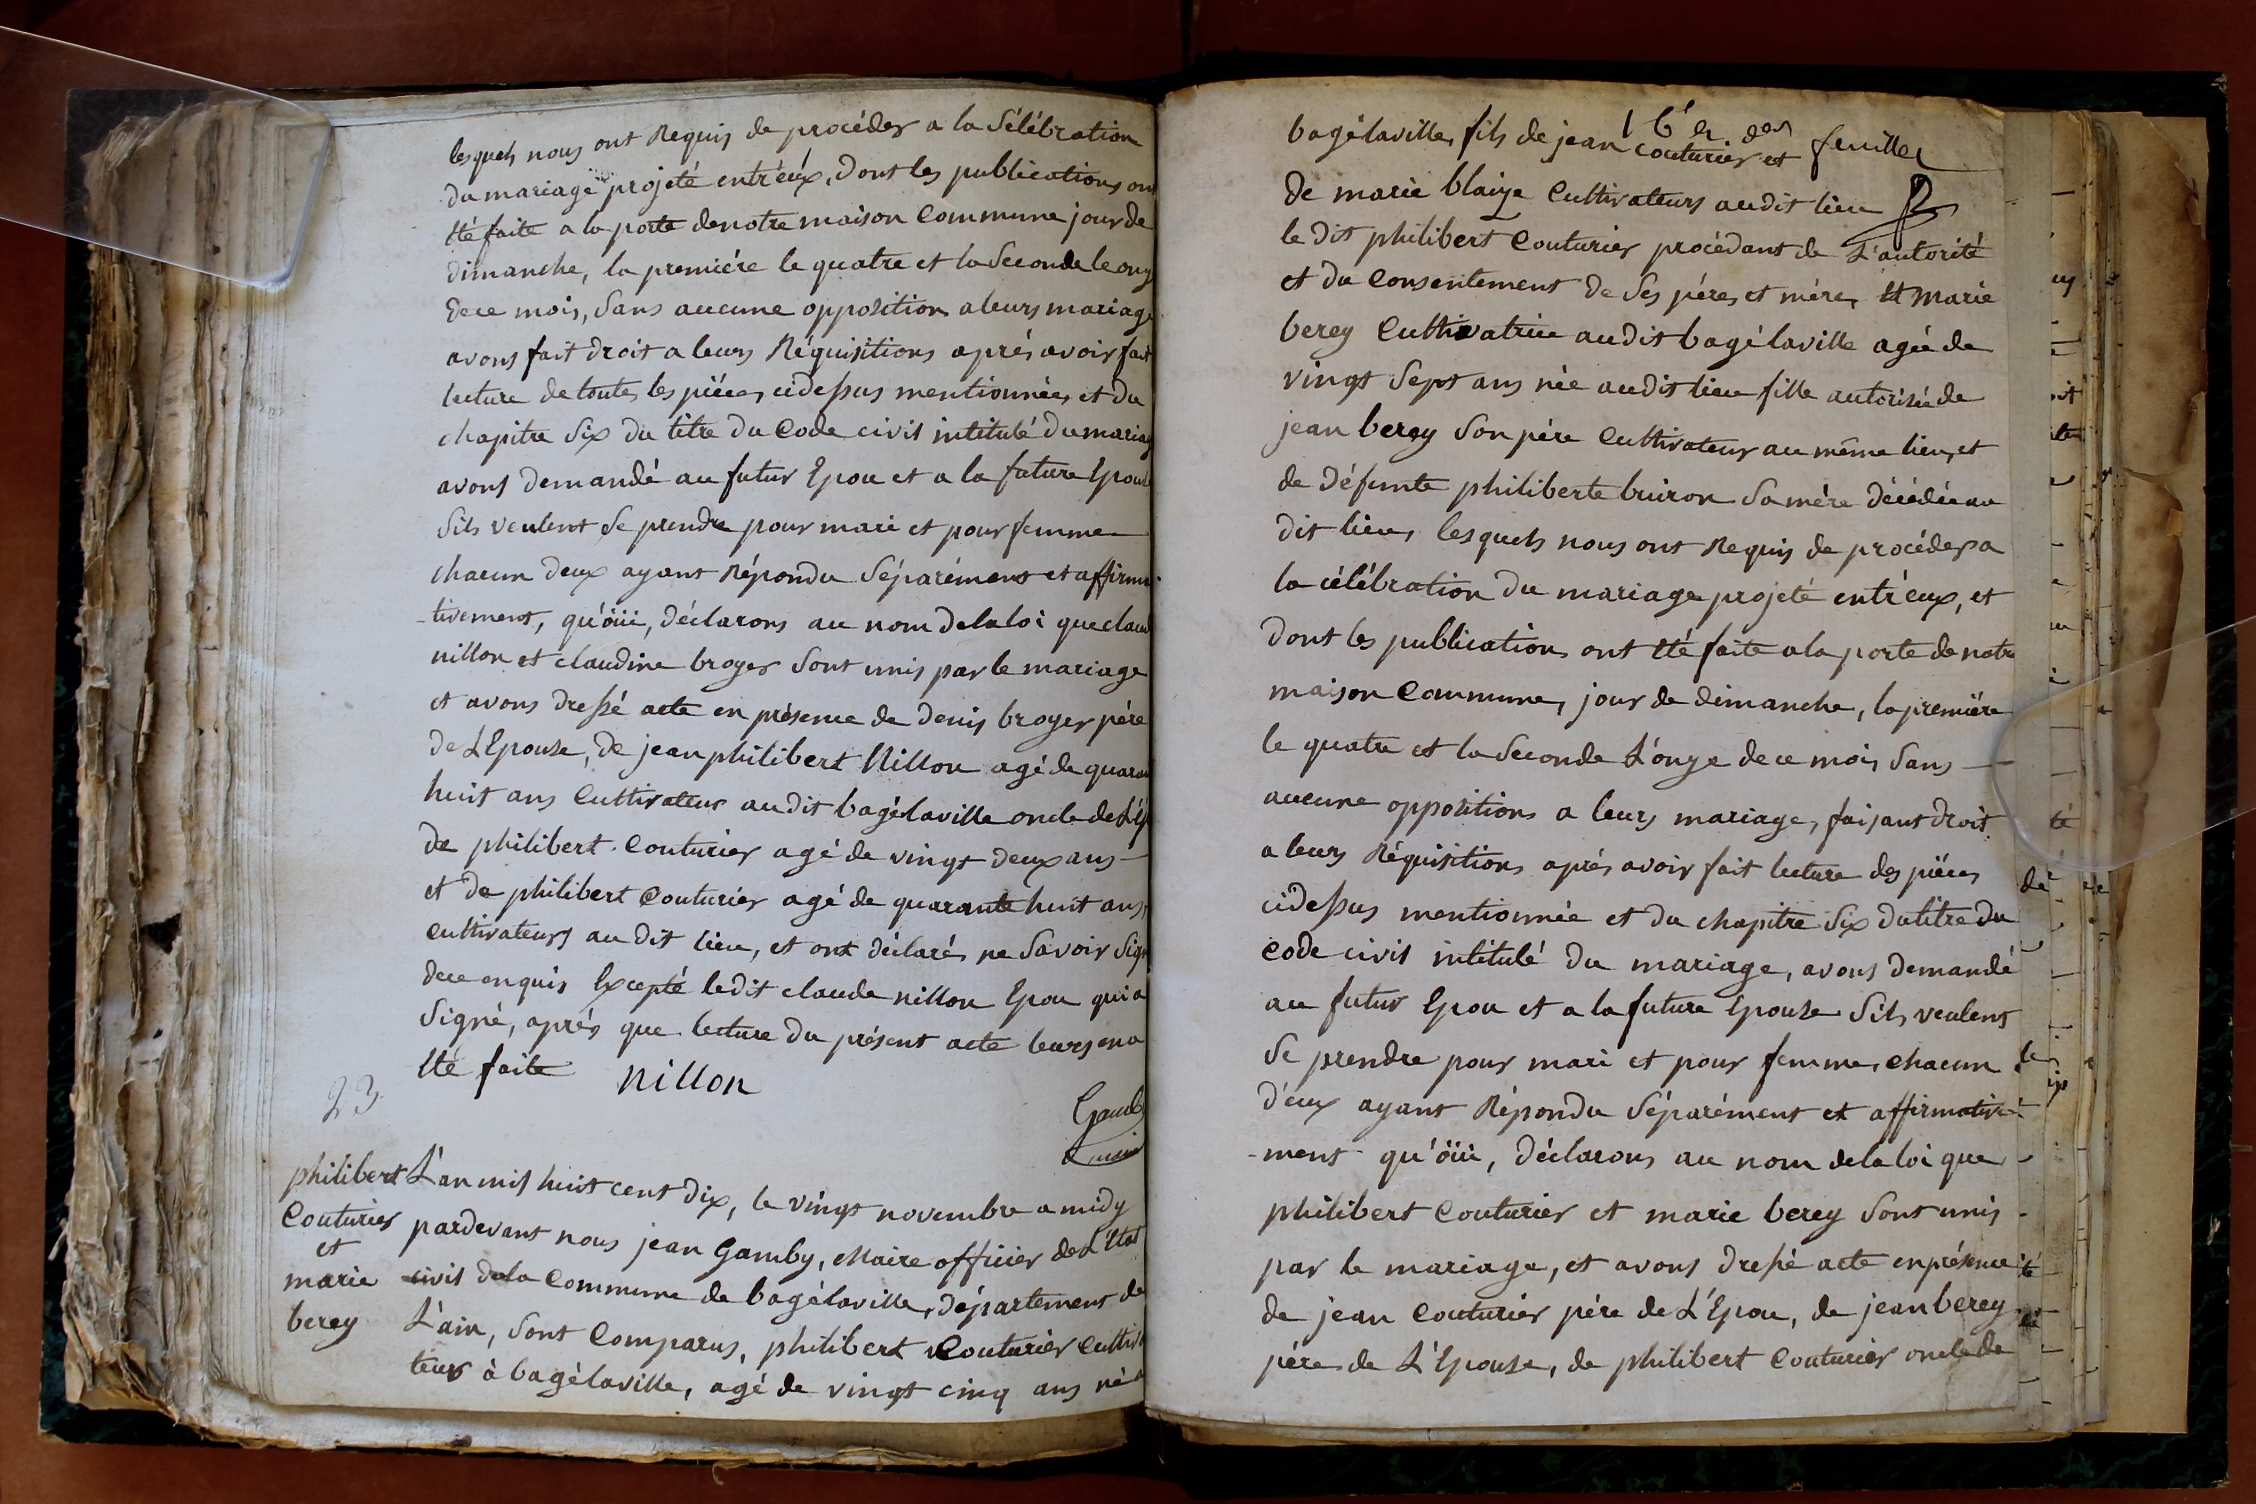 lesquels nous ont Requis de procéder a la Sélébration
du mariage projeté entréux, Dont les publications on
Eté faite a la porte denotre maison Commune jour de
dimanche, la premiére le quatre et la Seconde le onz
de ce mois, Sans aucune opposition aleurs mariage
avons fait droit a leurs Réquisitions aprés avoir fait
lecture de toutes les piéces cidessus mentionnées et du
chapitre Six du titre du Code civil intitulé du mariag
avons demandé au futur Epou et a la future Epous
Sils veulent Se prendre pour mari et pour femme
chacun deux ayant Répondu Séparément et affirma
-tivement, qu'öüi, déclarons au nom de la loi que claud
nillon et claudine broyer Sont unis par le mariage
et avons dressé acte en présence de denis broyer pére
de L'Epouse, de jean philibert Nillon agé de quaran
huit ans Cultivateur audit bagélaville oncle de L'Ep
de philibert Couturier agé de vingt deux ans
et de philibert Couturier agé de quarante huit ans
cultivateurs au dit lieu, et ont déclaré ne Savoir Sign
de ce enquis Excepté ledit claude nillon Epou qui a
Signé, aprés que lecture du présent acte leurs en a
Eté faite nillon
23
philibert
Couturier
et
marie
berey
L'an mil huit cent dix, le vingt novembre a midy
pardevant nous jean Gamby, Maire officier de L'Etat
civil dela Commune de bagélaville, département de
L'ain, Sont Comparus, philibert Couturier Cultiva
teur à bagélaville, agé de vingt cinq ans né a
feuille
bagélaville, fils de jean Couturier et
de marie blaize Cultivateurs audit lieu
le dit philibert Couturier procédant de L'autorité
et du Consentement de Ses péres et mére, Et Marie
berey Cultivatrice audit bagélaville agée de
vingt Sept ans née audit lieu fille autorisée de
jean berey Son pére Cultivateur au même lieu, et
de défunte philiberte buiron Sa mére décédée au
dit lieu, lesquels nous ont Requis de procéder a
la célébration du mariage projeté entréux, et
dont les publications ont Eté faite a la porte de notre
maison Commune, jour de dimanche, la premiére
le quatre et la Seconde L'onze de ce mois Sans
aucune oppositions a leurs mariage, faisant droit
a leurs Réquisitions aprés avoir fait lecture des piéces
cidessus mentionnée et du chapitre Six du titre du
Code civil intitulé du mariage, avons demandé
au futur Epou et a la future Epouse Sils veulent
Se prendre pour mari et pour femme, chacun
d'eux ayant Répondu Séparément et affirmative
-ment qu'öüi, déclarons au nom de la loi que
philibert Couturier et marie berey Sont unis
par le mariage, et avons dressé acte en présence
de jean Couturier pére de L'Epou, de jean berey
pére de L'Epouse, de philibert Couturier oncle de